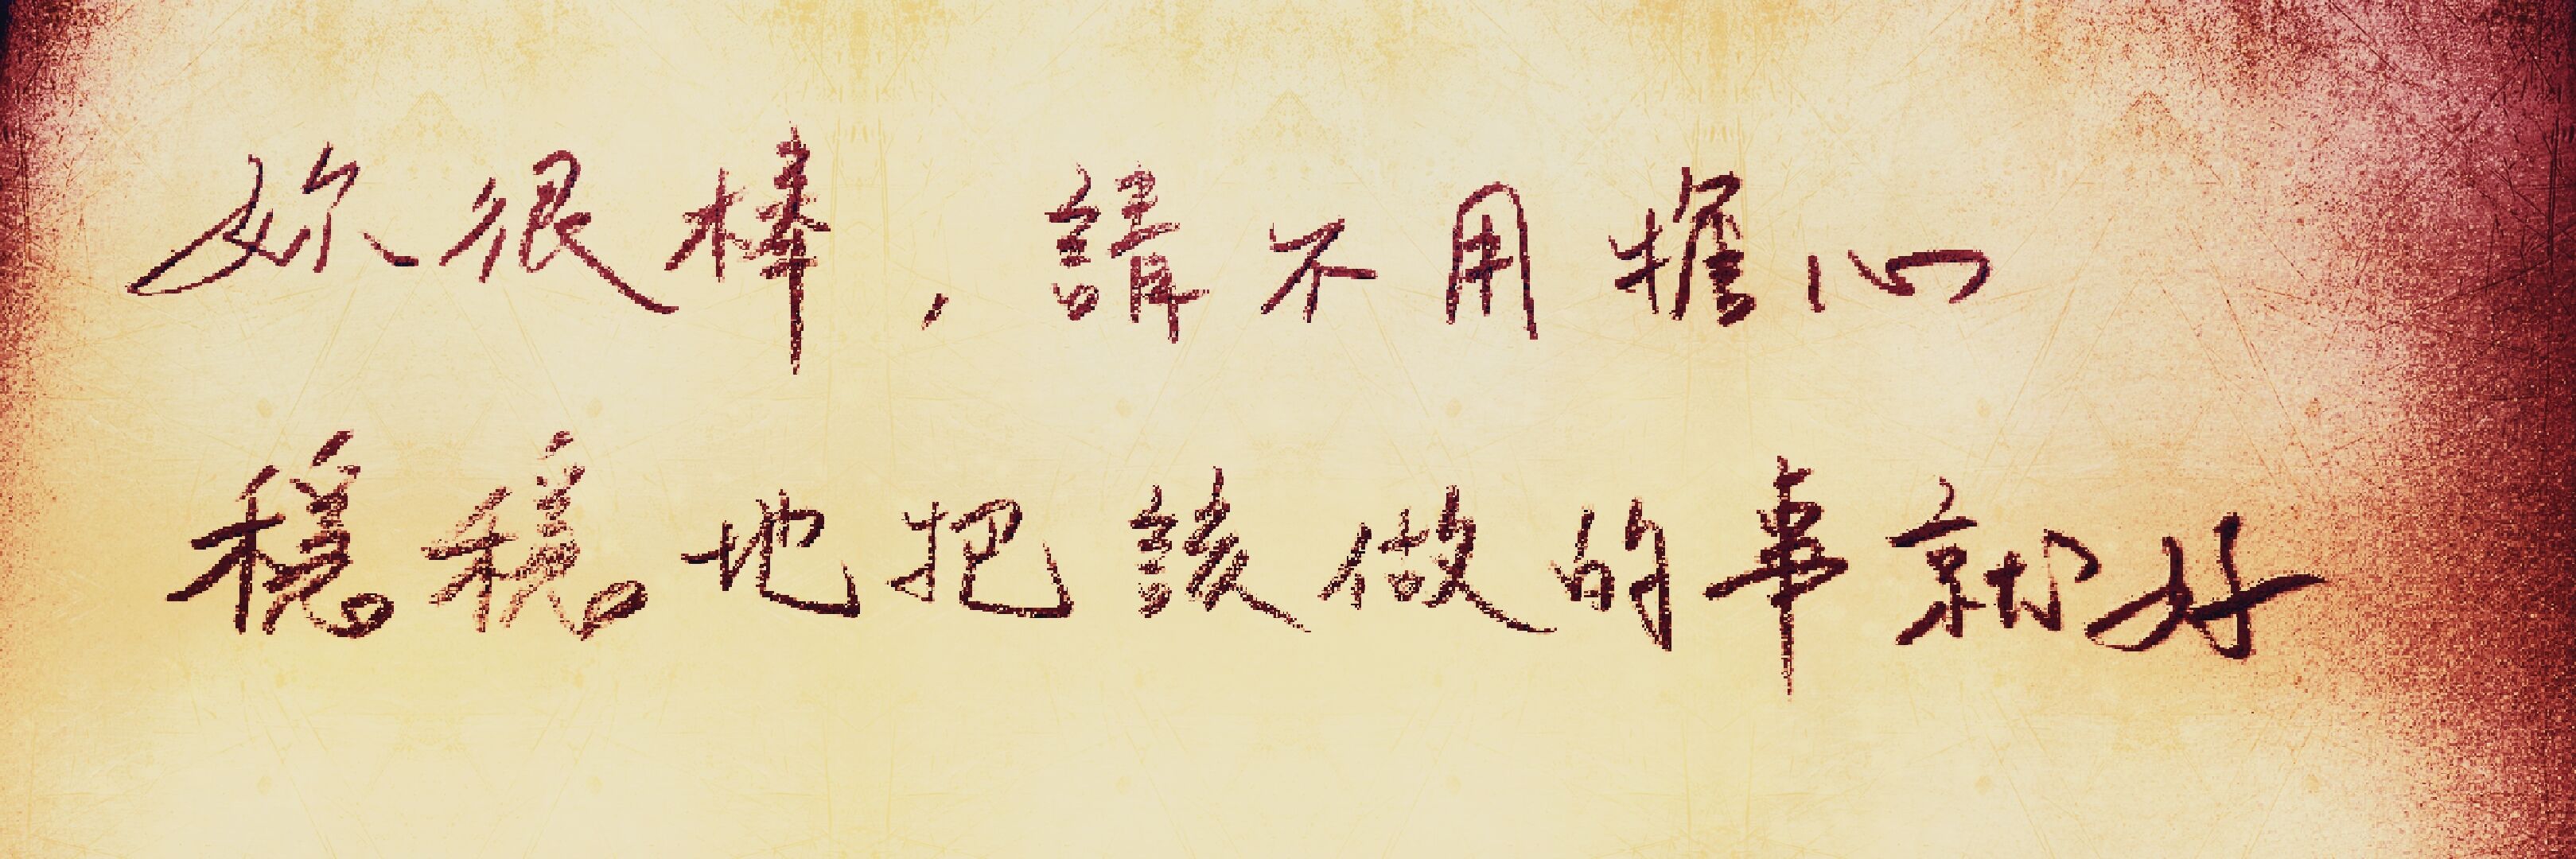 妳很棒，請不用擔心
穩穩地把該做的事就好